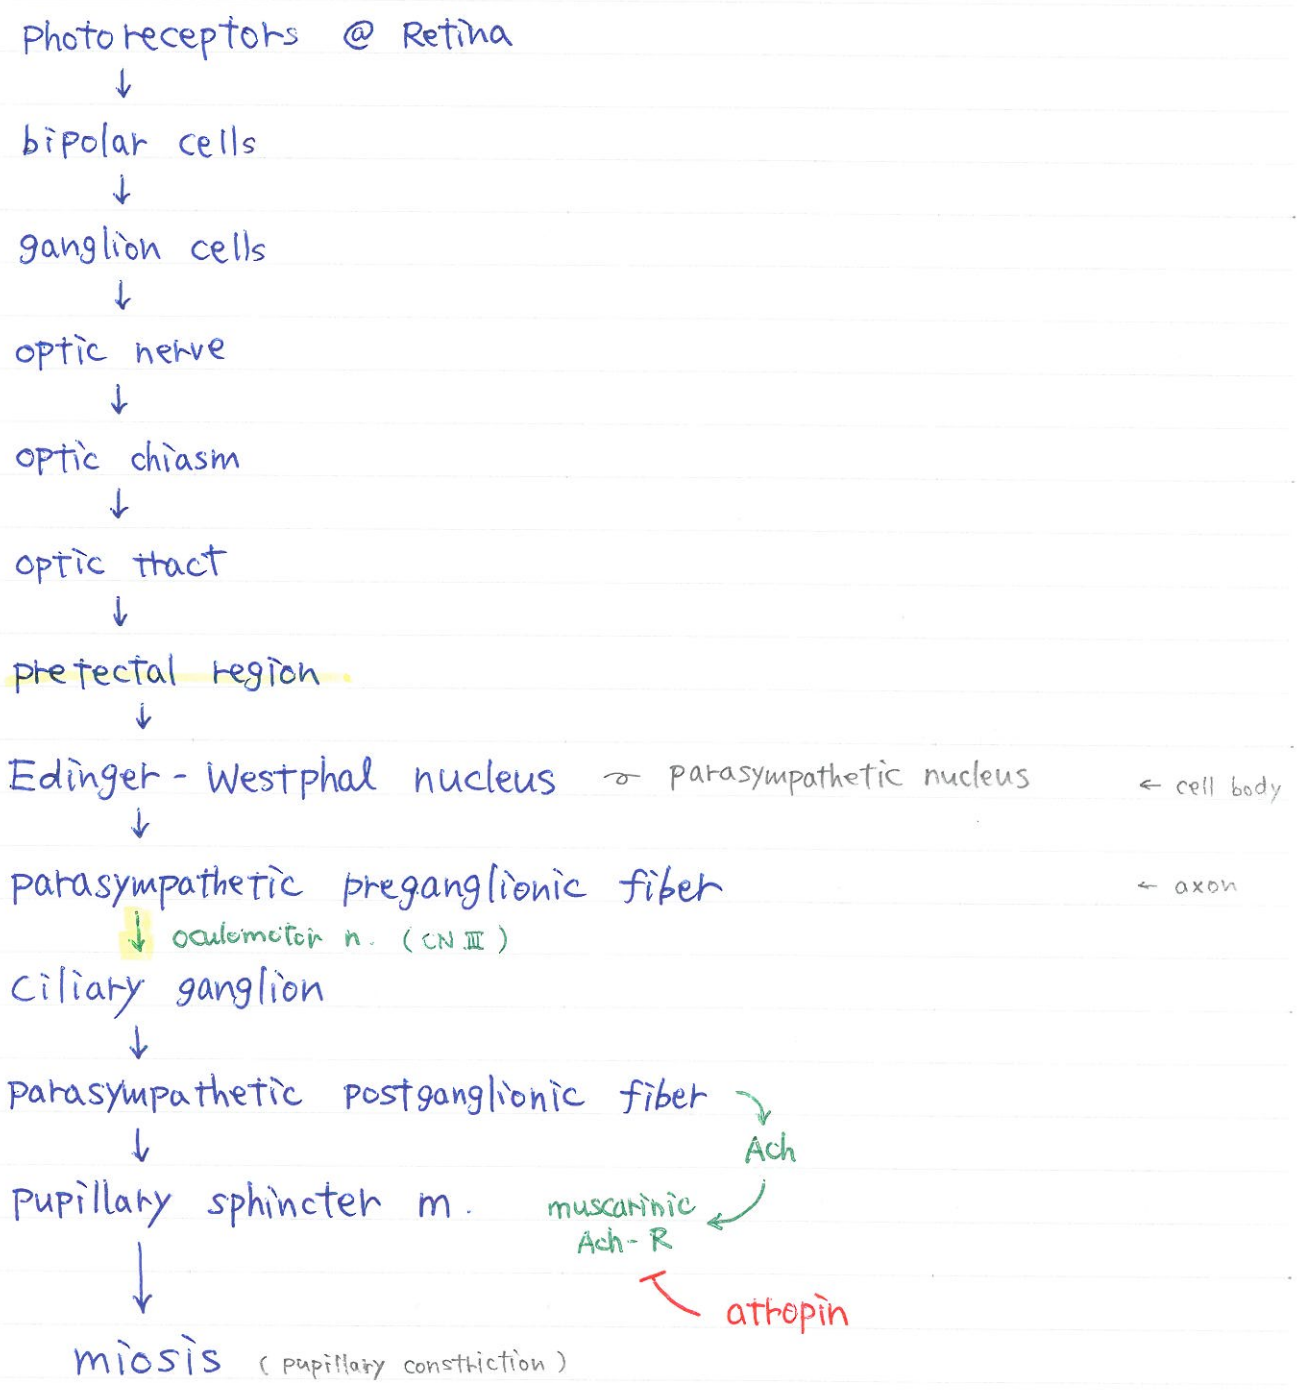 Photoreceptors @ Retina
↓
bipolar cells
↓
ganglion cells
↓
optic nerve
↓
optic chiasm
↓
optic tract
↓
pretectal region
↓
Edinger - Westphal nucleus parasympathetic nucleus ← cell body
↓
parasympathetic preganglionic fiber ← axon
↓ oculomotor n. (CN III)
ciliary ganglion
↓
parasympathetic postganglionic fiber
↓ Ach
pupillary sphincter m. muscarinic
Ach-R
↓
atropin
miosis (pupillary constriction)